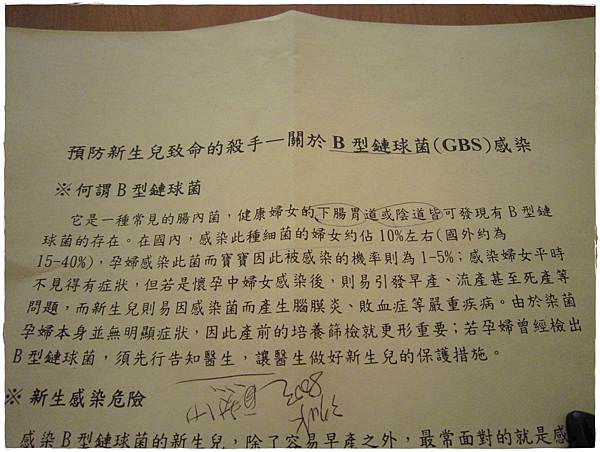 預防新生兒致命的殺手—關於 B 型鏈球菌(GBS)感染
※ 何謂 B 型鏈球菌
它是一種常見的腸內菌，健康婦女的下腸胃道或陰道皆可發現有 B 型鏈
球菌的存在。在國內，感染此種細菌的婦女約佔 10%左右(國外約為
15-40%)，孕婦感染此菌而寶寶因此被感染的機率則為 1-5%；感染婦女平時
不見得有症狀，但若是懷孕中婦女感染後，則易引發早產、流產甚至死產等
問題，而新生兒則易因感染菌而產生腦膜炎、敗血症等嚴重疾病。由於染菌
孕婦本身並無明顯症狀，因此產前的培養篩檢就更形重要；若孕婦曾經檢出
B 型鏈球菌，須先行告知醫生，讓醫生做好新生兒的保護措施。
※ 新生感染危險
感染 B 型鏈球菌的新生兒，除了容易早產之外，最常面對的就是感